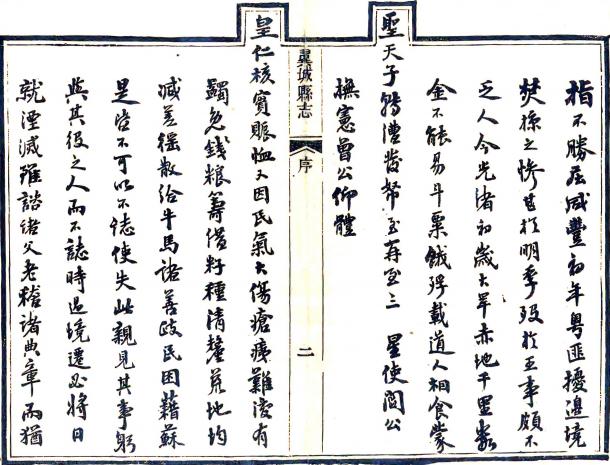 指不勝屈咸豐初年粤匪擾邊境
焚掠之慘甚於明季歿於王事頗不
乏人今光緒初歲大旱赤地千里數
金不能易斗粟餓殍載道人相食蒙
聖天子轉漕發帑至再至三 星使閻公
撫憲曾公仰體
翼城縣志
序
二
皇仁核實賑恤又因民氣大傷瘡痍難復有
蠲免錢粮籌備籽種清釐荒地均
減差徭散給牛馬諸善政民困藉蘇
是皆不可以不誌使失此親見其事躬
與其役之人而不誌時過境遷必將日
就湮滅雖諮諸父老稽諸典章而猶